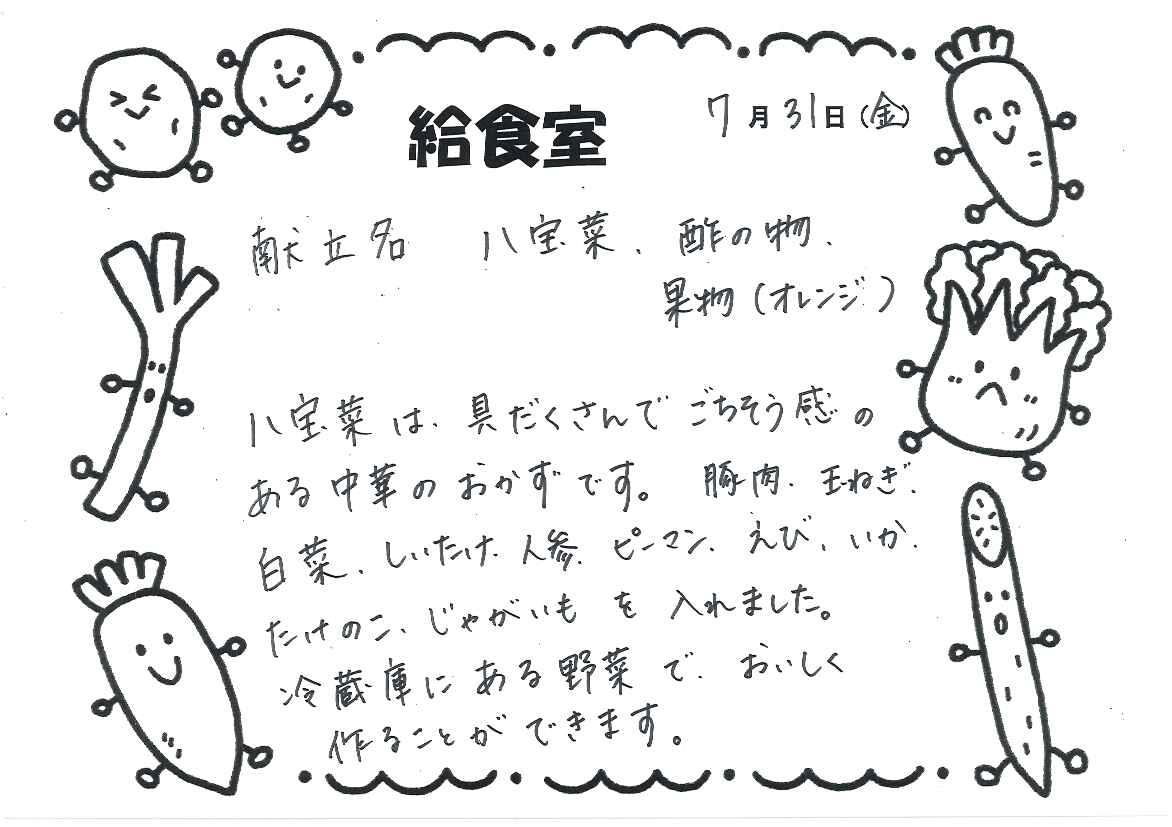 給食室
7月31日(金)
献立名 八宝菜、酢の物、
果物(オレンジ)
八宝菜は、具だくさんでごちそう感の
ある中華のおかずです。豚肉、玉ねぎ、
白菜、しいたけ、人参、ピーマン、えび、いか、
たけのこ、じゃがいもを入れました。
冷蔵庫にある野菜で、おいしく
作ることができます。